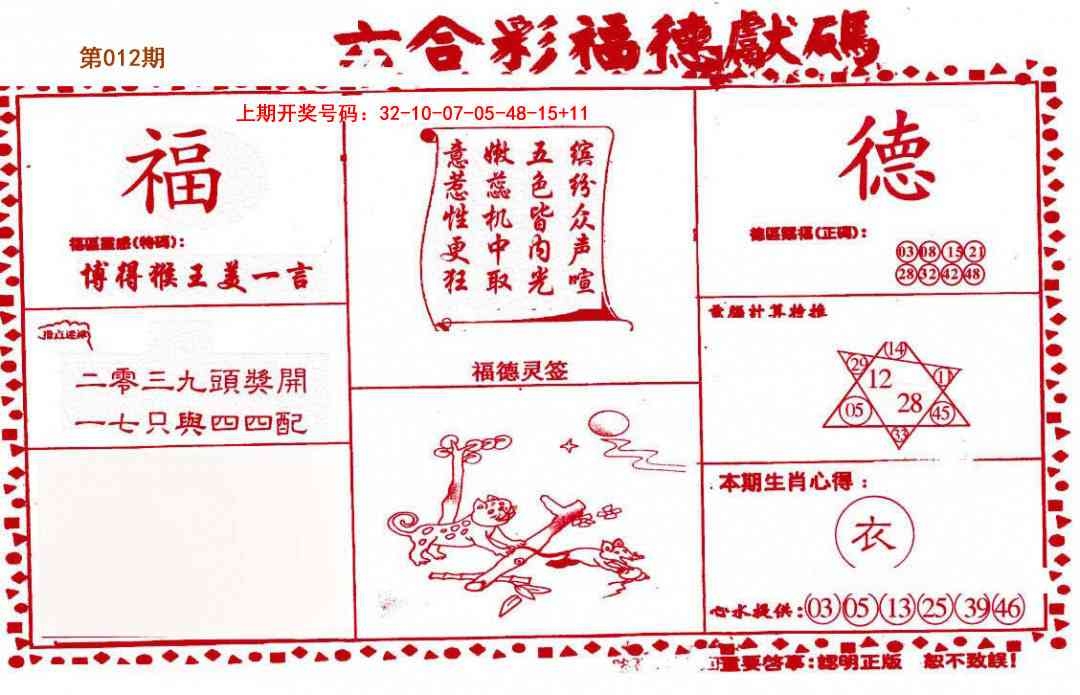 六合彩福德獻碼
第012期
上期开奖号码：32-10-07-05-48-15+11
福
福區靈感(特碼)：
博得猴王美一言
二零三九頭獎開
一七只與四四配
缤纷众声喧
五色皆内光
嫩蕊机中取
意惹性更狂
福德灵签
德
德區賜福(正碼)：
03 08 15 21
28 32 42 48
計算
14
29
12
28
05
45
33
本期生肖心得：
衣
心水提供：03 05 13 25 39 46
重要啓事：認明正版 恕不致誤！